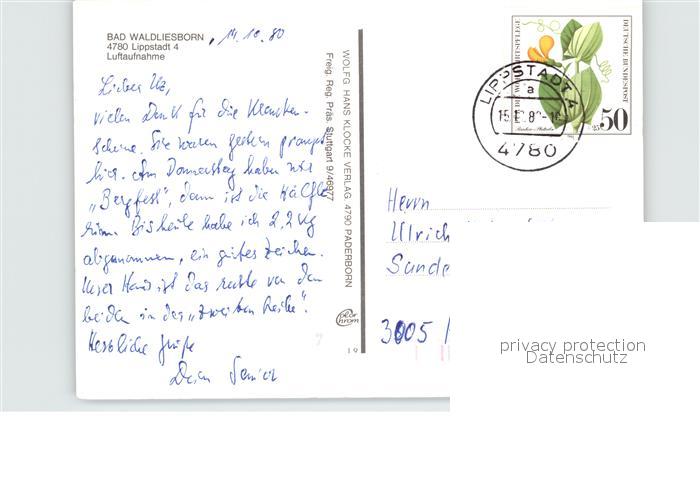 BAD WALDLIESBORN
4780 Lippstadt 4
Luftaufnahme
14.10.80
Lieber Uz,
vielen Dank für die Kranken-
scheine. Sie waren gestern prompt
hier. Am Donnerstag haben wir
"Bergfest", dann ist die Hälfte
rum. Bis heute habe ich 2,2 kg
abgenommen, ein gutes Zeichen.
Unser Haus ist das rechte von den
beiden in der "zweiten Reihe".
Herzliche Grüße
Dein Senior
WOLFG. HANS KLOCKE VERLAG 4790 PADERBORN
Freig. Reg. Präs. Stuttgart 9/46977
19
DEUTSCHE BUNDESPOST
50
LIPPSTADT 4
a
4780
Herrn
Ulrich
Sande
3005
privacy protection
Datenschutz